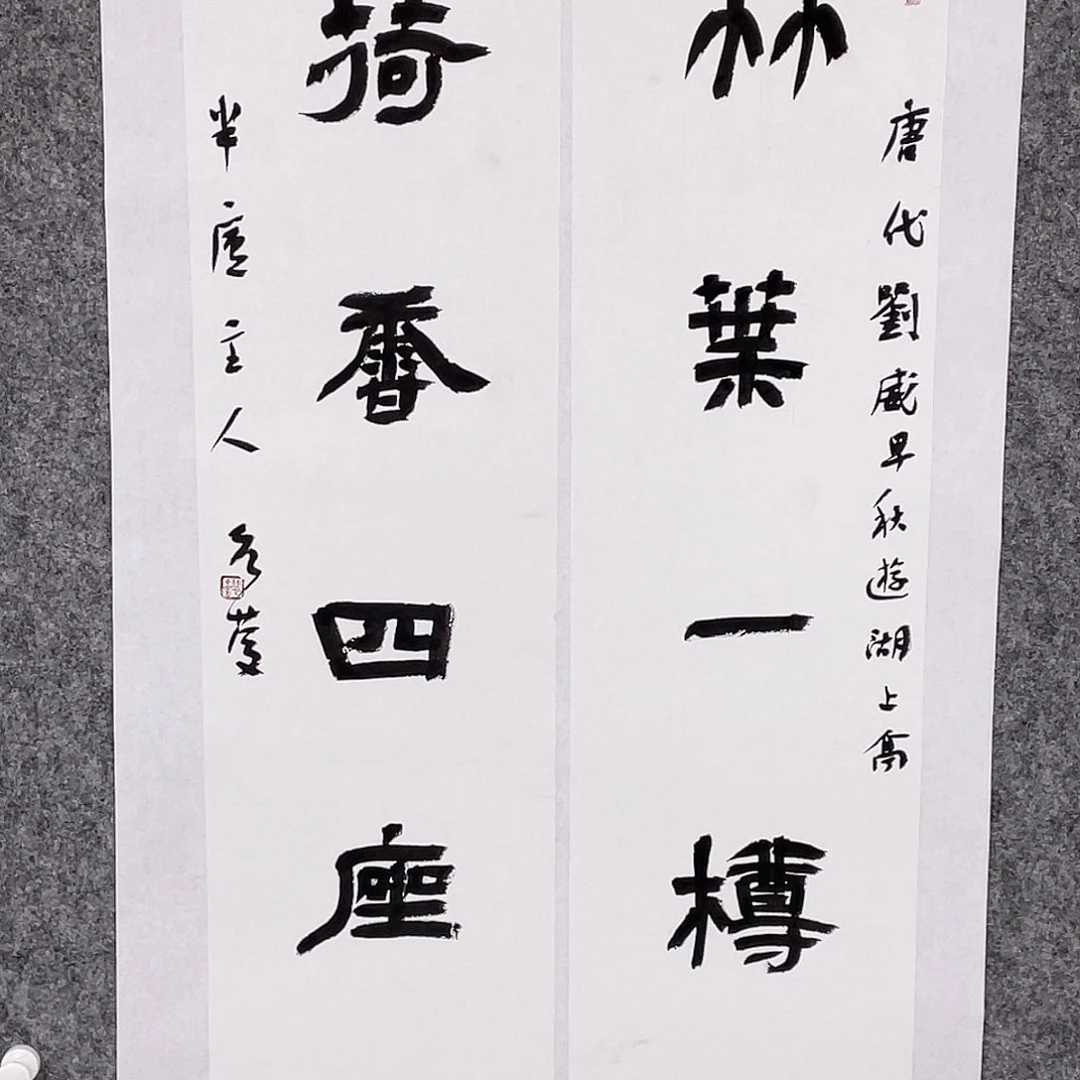 唐代劉威早秋遊湖上高
竹葉一樽
荷香四座
半廬主人